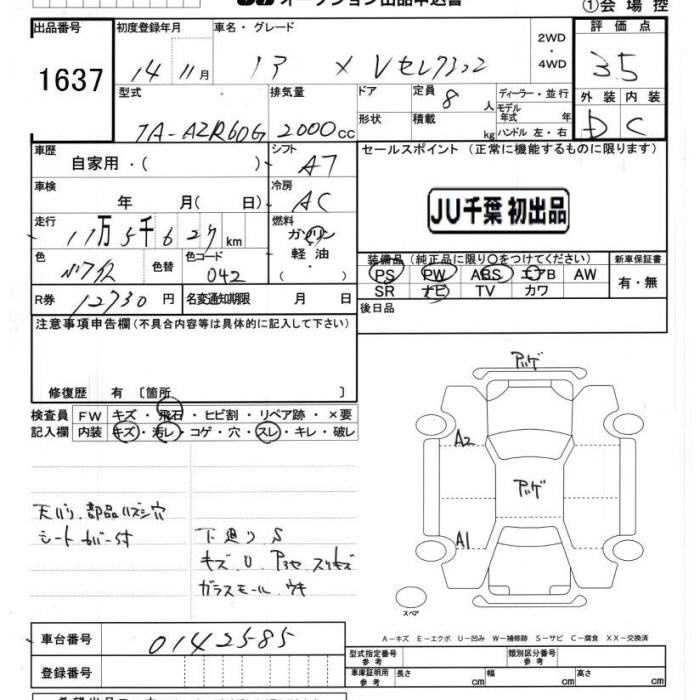 オークション出品申込書
①会場控
出品番号 初度登録年月 車名・グレード 2WD ・ 4WD 評価点
1637 14年11月 ノア X Vセレクション 3.5
型式 排気量 ドア 定員 8人 ディーラー・並行 外装 内装
TA-AZR60G 2000cc 形状 積載 kg モデル年式 年 ハンドル 左・右 D C
車歴 自家用・( ) シフト AT セールスポイント(正常に機能するものに限ります)
車検 年 月( 日) 冷房 AC
JU千葉 初出品
走行 11万5千627km 燃料 ガソリン・軽油・
色 色替 色コード 042
装備品(純正品に限り○をつけてください) 新車保証書
PS PW ABS エアB AW 有・無
SR ナビ TV カワ
R券 12730円 名変通知期限 月 日
後日品
注意事項申告欄(不具合内容等は具体的に記入して下さい)
修復歴 有 〔箇所 〕
検査員記入欄 FW キズ・飛石・ヒビ割・リペア跡・×要
内装 キズ・汚レ・コゲ・穴・スレ・キレ・破レ
天バリ、部品ハズシ穴
シートカバー付
下廻りS
キズ、U、アセ、スリキズ
ガラスモール、ウキ
アゲ
A2
アゲ
A1
スペア
A-キズ E-エクボ U-凹み W-補修跡 S-サビ C-腐食 XX-交換済
車台番号 0142585
登録番号
型式指定番号 参考 類別区分番号 参考
車庫証明用 参考 長さ cm 幅 cm 高さ cm